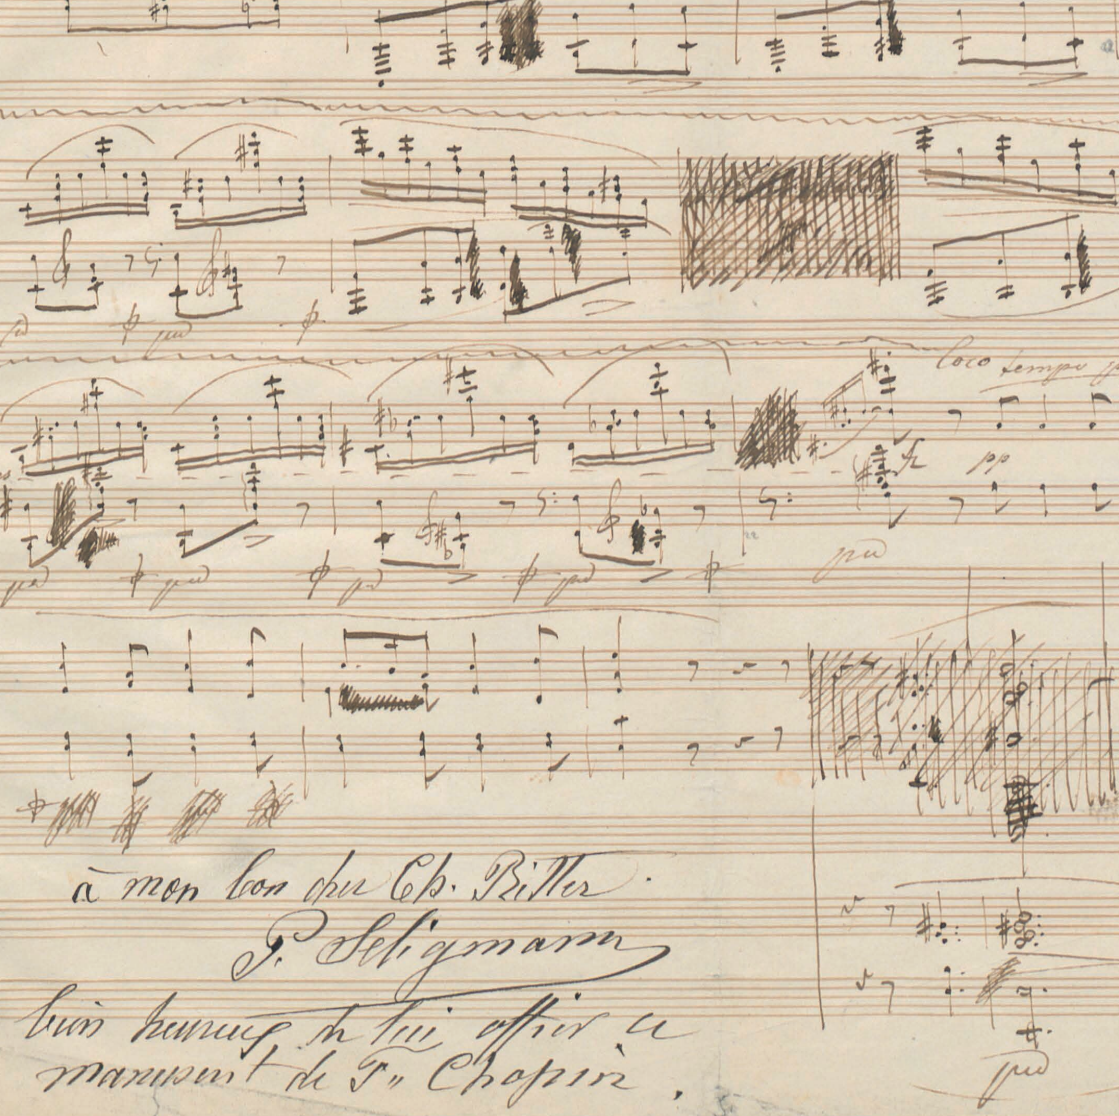 loco tempo
fz
pp
ped
ped
ped
ped
ped
ped
ped
à mon bon cher Ch. Ritter.
P. Seligmann
bien heureux de lui offrir ce
manuscrit de F. Chopin.
ped